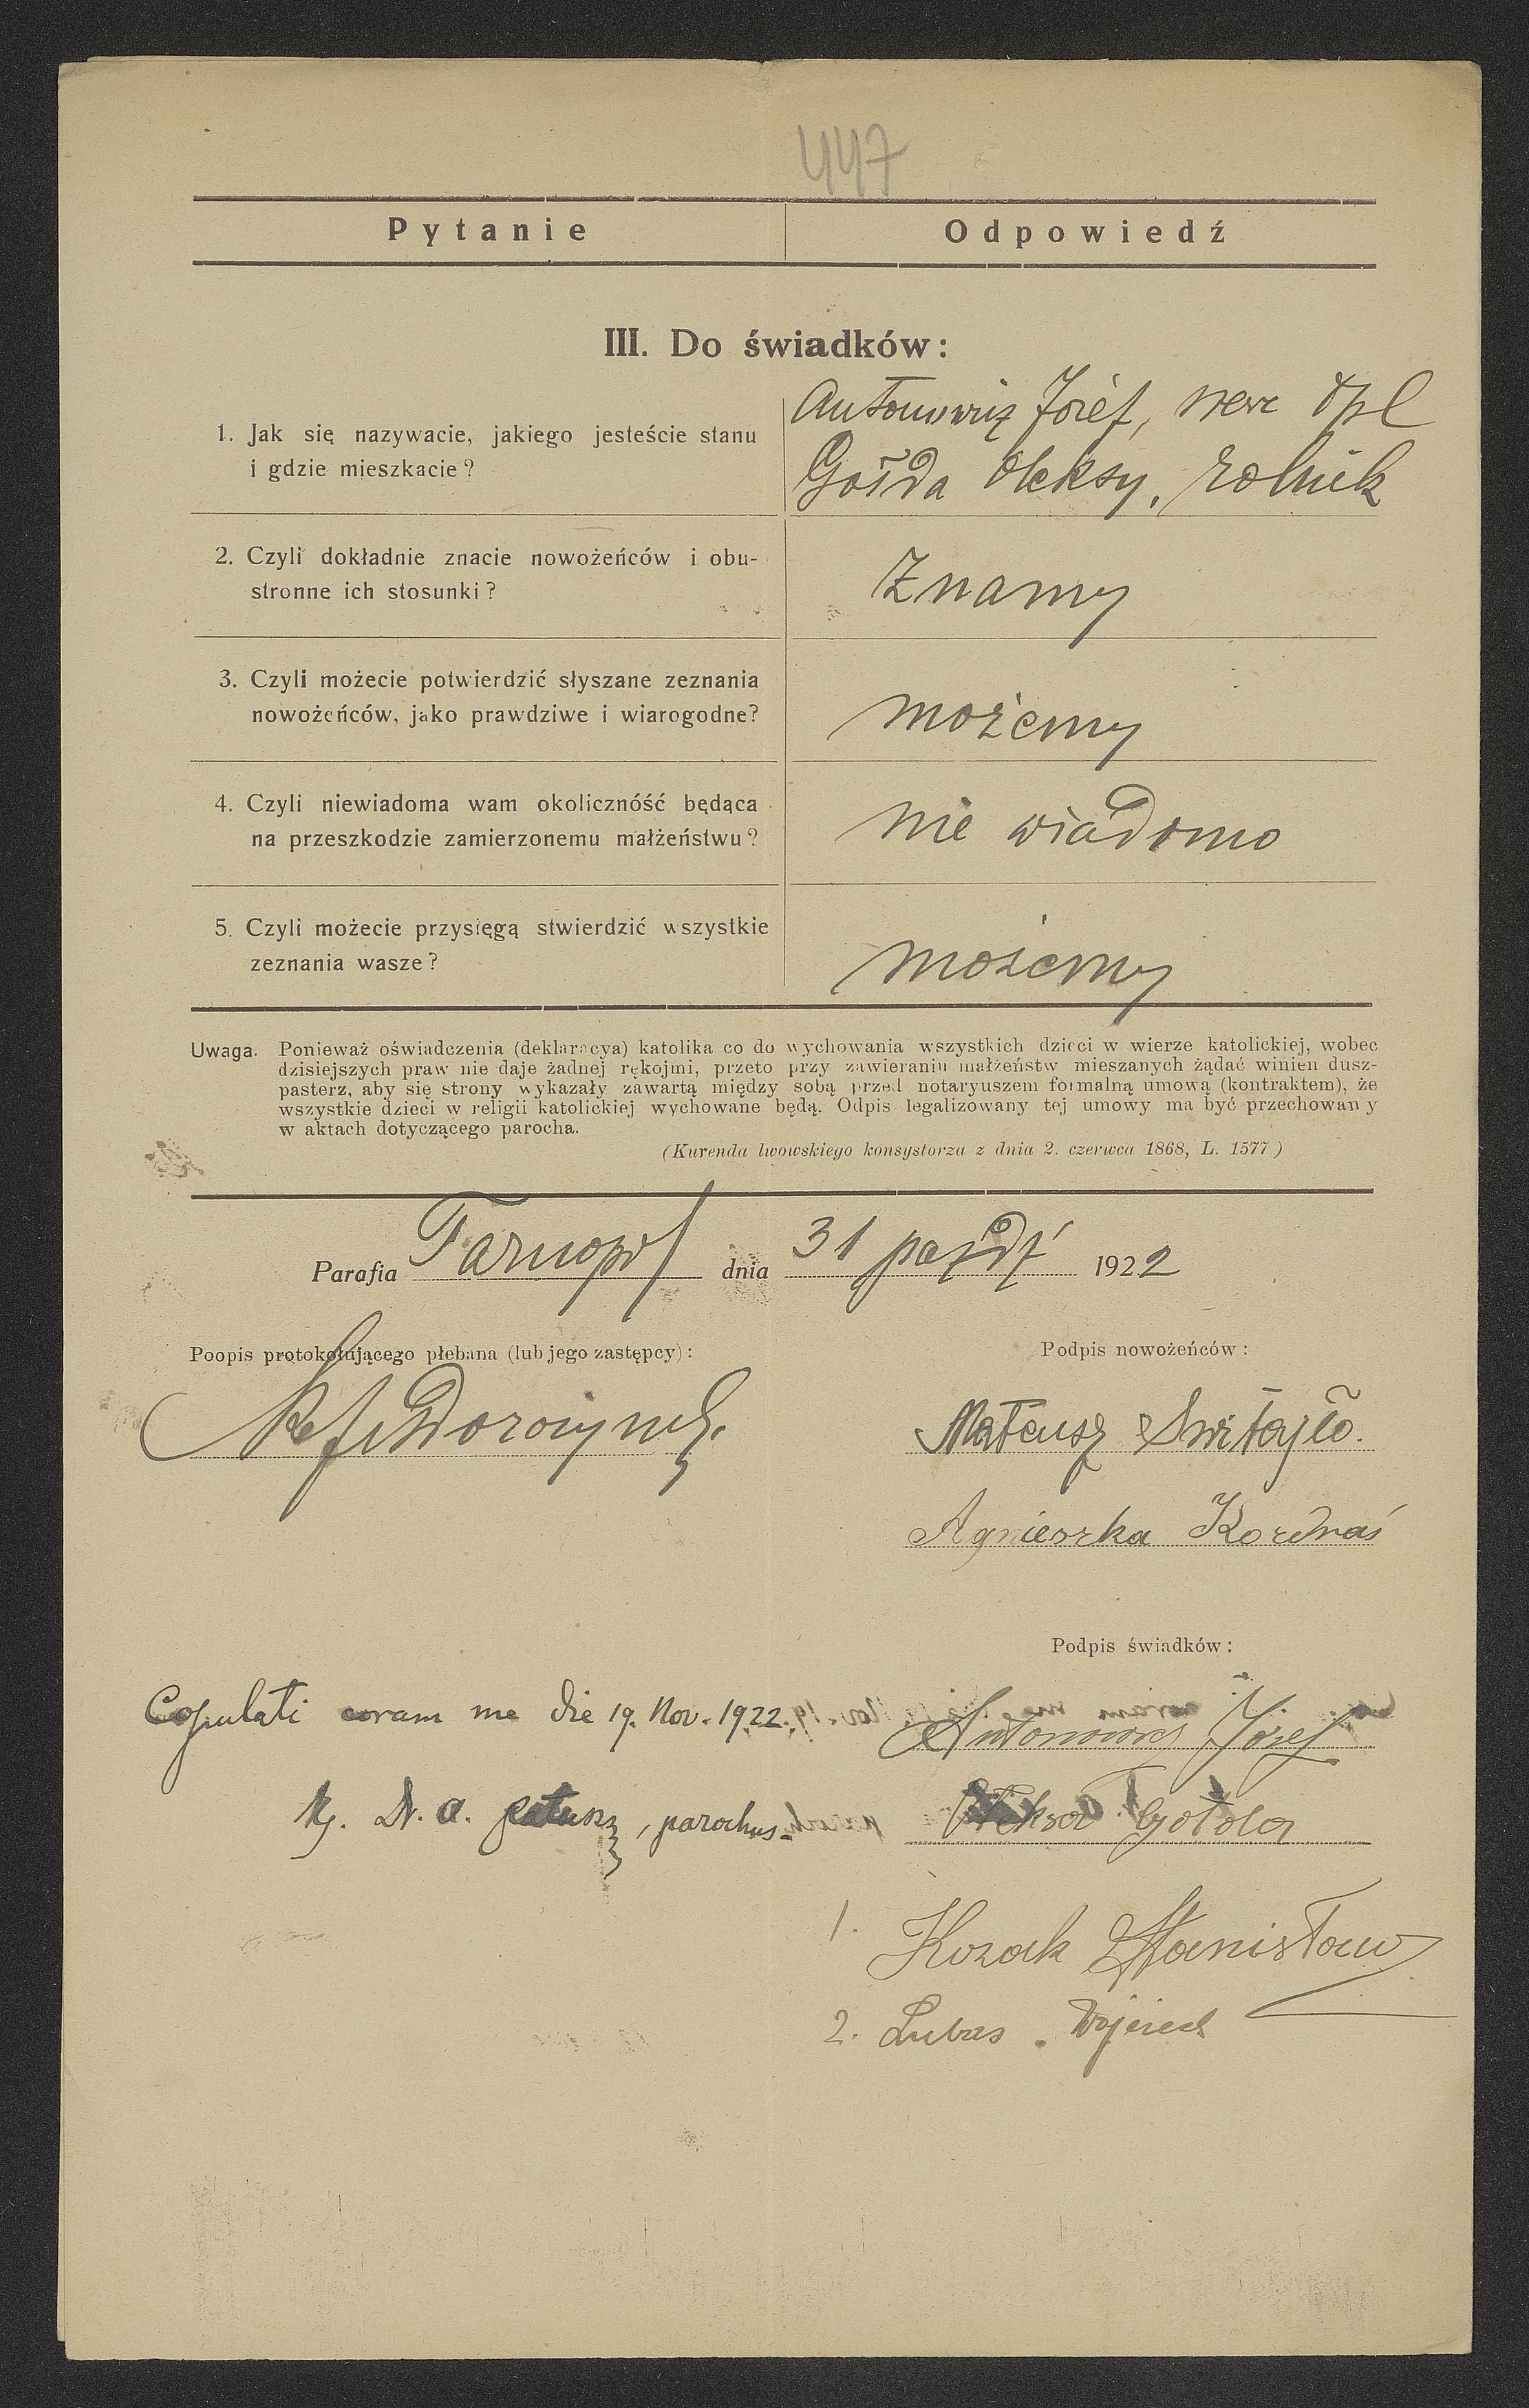 447
Pytanie Odpowiedź
III. Do świadków:
1. Jak się nazywacie, jakiego jesteście stanu
i gdzie mieszkacie?
Antonowicz Józef,
Gołda Oleksy, rolnik
2. Czyli dokładnie znacie nowożeńców i obu-
stronne ich stosunki?
Znamy
3. Czyli możecie potwierdzić słyszane zeznania
nowożeńców, jako prawdziwe i wiarogodne?
możemy
4. Czyli niewiadoma wam okolicznóść będąca
na przeszkodzie zamierzonemu małżeństwu?
nie wiadomo
5. Czyli możecie przysięgą stwierdzić wszystkie
zeznania wasze?
możemy
Uwaga. Ponieważ oświadczenia (deklaracya) katolika co do wychowania wszystkich dzieci w wierze katolickiej, wobec
dzisiejszych praw nie daje żadnej rękojmi, przeto przy zawieraniu małżeństw mieszanych żądać winien dusz-
pasterz, aby się strony wykazały zawartą między sobą przed notaryuszem formalną umową (kontraktem), że
wszystkie dzieci w religii katolickiej wychowane będą. Odpis legalizowany tej umowy ma być przechowany
w aktach dotyczącego parocha.
(Kurenda lwowskiego konsystorza z dnia 2. czerwca 1868, L. 1577)
Parafia Tarnopol dnia 31 paźdź 1922
Poopis protokołującego plebana (lub jego zastępcy):
Podpis nowożeńców:
Mateusz Switajło.
Agnieszka Kordnaś
Podpis świadków:
Copulati coram me die 19. Nov. 1922.
Antonowicz Józef
Dr. A. , parochus.
Oleksa Gołda
1. Kozak Stanisław
2. Lubas Wojciech